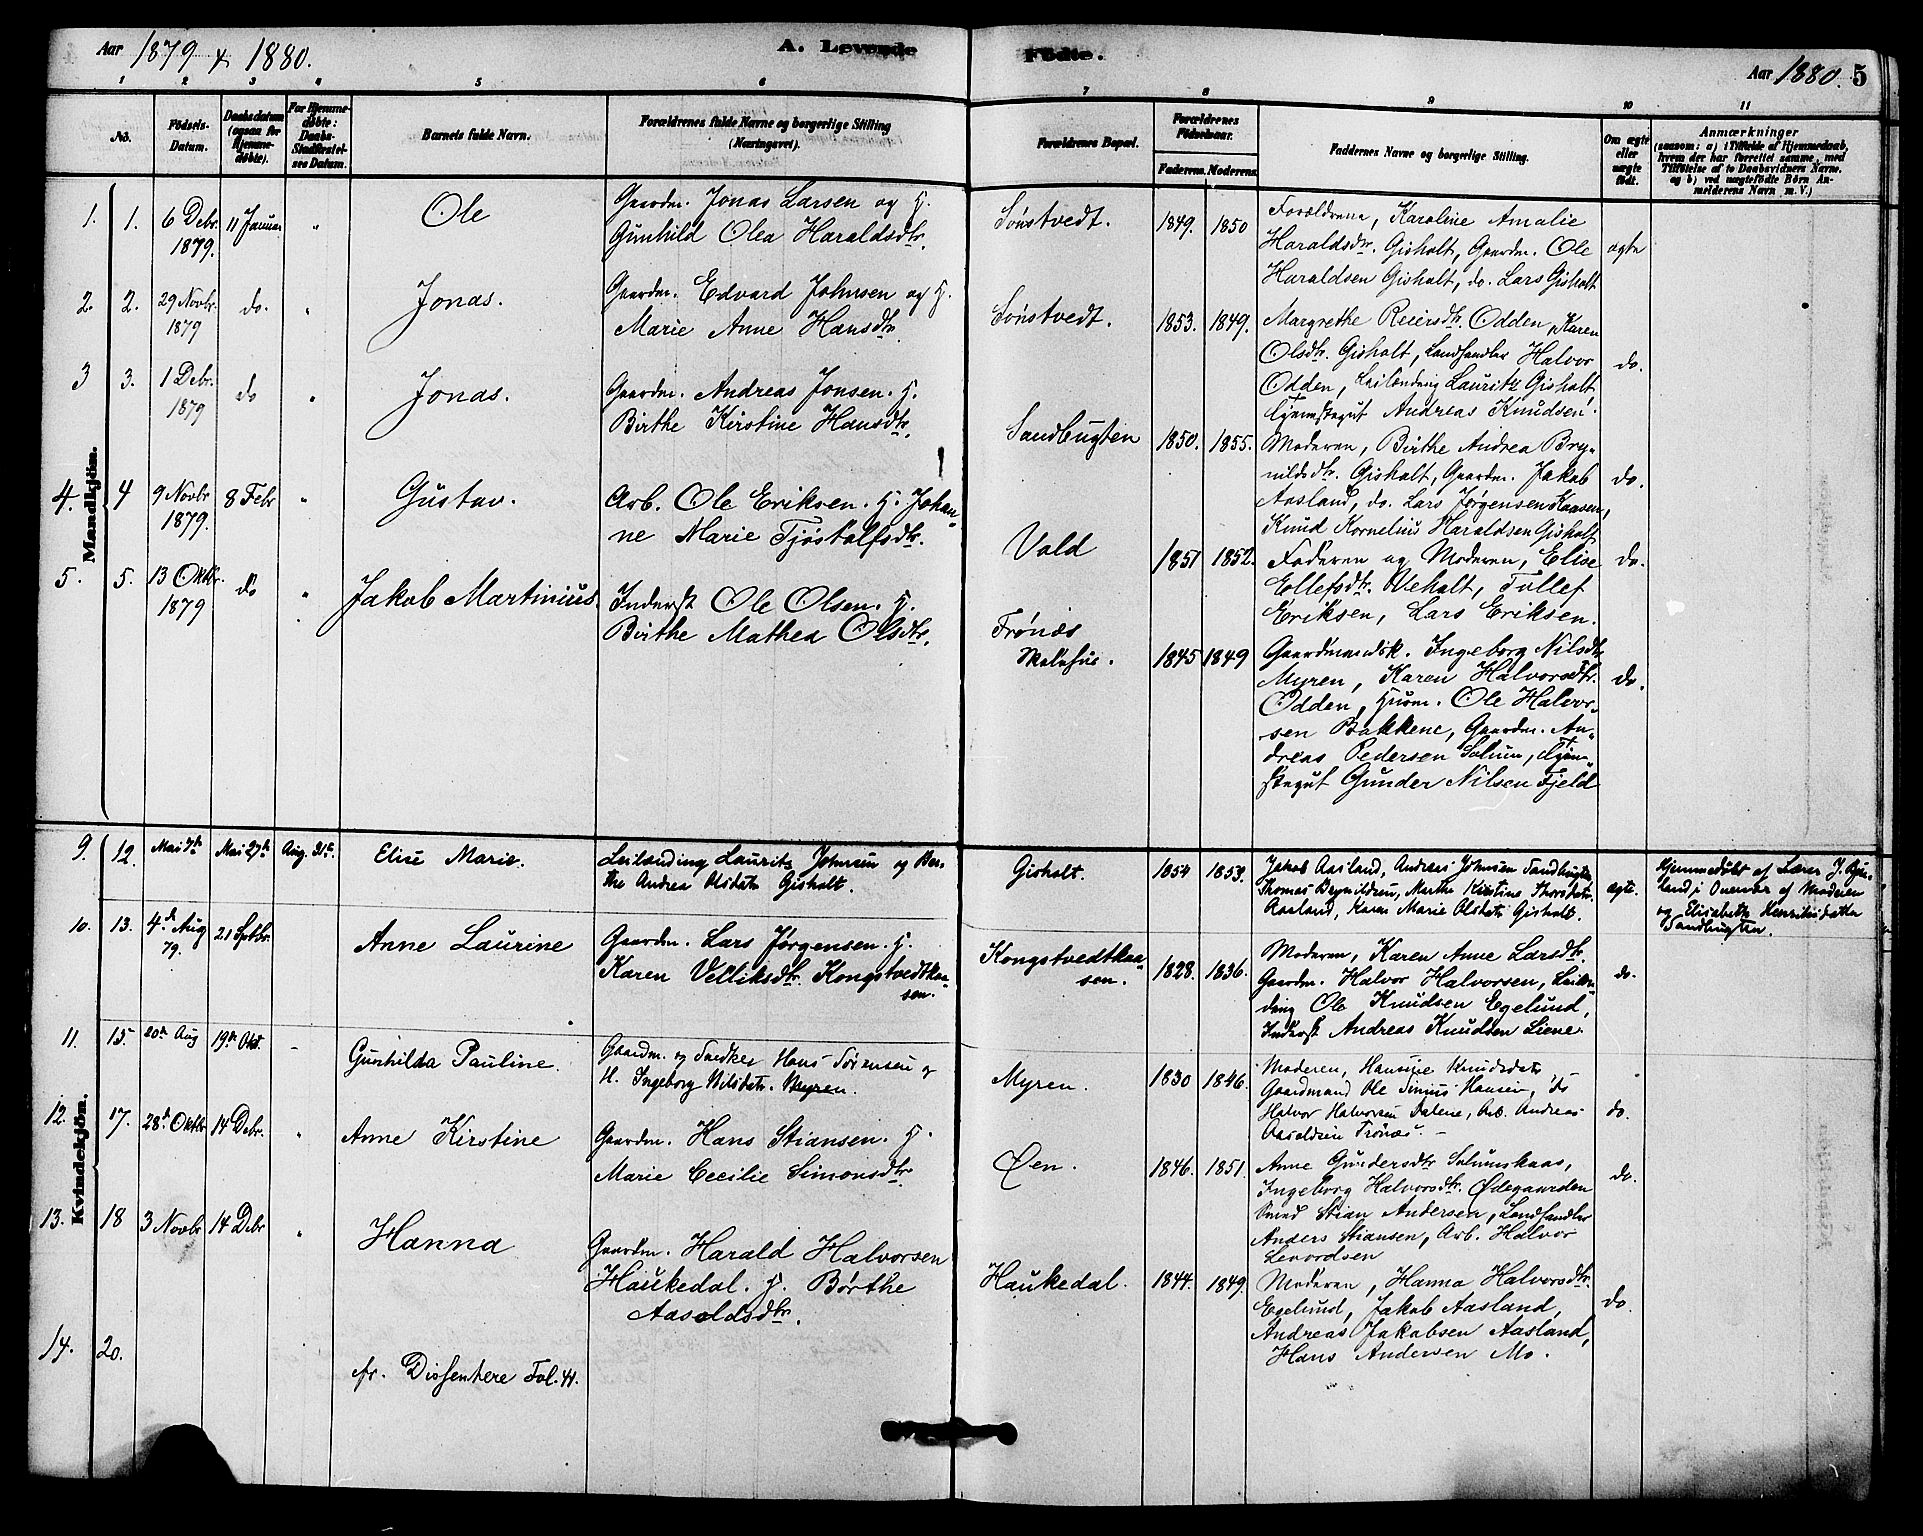 Aar 1879 & 1880.
A. Levende
Födte.
Aar 1880. 5
1 2 3 4 5 6 7 8 9 10 11
No.
Födsels-
Datum.
Daabsdatum
(ogsaa for
Hjemme-
døbte).
For Hjemme-
døbte:
Daabs-
Stadfæstel-
ses Datum.
Barnets fulde Navn.
Forældrenes fulde Navne og borgerlige Stilling
(Næringsvei).
Forældrenes Bopæl.
Forældrenes
Födselsaar.
Faderens. Moderens.
Faddernes Navne og borgerlige Stilling.
Om ægte
eller
uægte
født.
Anmærkninger
(saasom: a) i Tilfælde af Hjemmedaab,
hvem der har forrettet samme, med
Tilføielse af to Daabsvidners Navne.
og b) ved uægtefödte Børn An-
melderens Navn m. V.)
Mandkjön.
1. 1. 6 Debr. 1879. 11 Januar " Ole
Gaardm. Jonas Larsen og H.
Gunhild Olea Haraldsdtr.
Sønstvedt. 1849. 1850
Forældrene, Karoline Amalie
Haraldsdtr. Gisholt, Gaardm. Ole
Haraldsen Gisholt, do. Lars Gisholt
ægte
2. 2. 29 Novbr. 1879 do. " Jonas.
Gaardm. Edvard Johnsen og H.
Marie Anne Hansdtr.
Sønstvedt. 1853. 1849.
Margrethe Reiersdtr. Odden, Karen
Olsdtr. Gisholt, Landhandler Halvor
Odden, Leilænding Lauritz Gisholt,
Tjenestegut Andreas Knudsen.
do.
3 3. 1 Debr. 1879 do " Jonas.
Gaardm. Andreas Jonsen. H.
Birthe Kirstine Hansdtr.
Sandbugten 1850. 1855.
Moderen, Birthe Andrea Bry-
nildsdtr. Gisholt, Gaardm. Jakob
Aasland, do. Lars Jørgensen Kaasen,
Knud Kornelius Haraldsen Gisholt
do.
4. 4 9 Novbr 1879. 8 Febr " Gustav.
Arb. Ole Eriksen. H. Johan-
ne Marie Tjøstolfsdtr.
Vald 1851 1852.
Faderen og Moderen, Elise
Ellefsdtr. Veholt, Tollef
Eriksen, Lars Eriksen.
do.
5. 5. 13 Oktbr. 1879 do " Jakob Martinius.
Inderst Ole Olsen. H.
Birthe Mathea Olsdtr.
Trønæs
1845 1849
Gaardmandsk. Ingeborg Nilsdtr
Myren, Karen Halvorsdtr.
Odden, Husm. Ole Halvor-
sen Bakkene, Gaardm. An-
dreas Pedersen Solum, Tjene-
stegut Gunder Nilsen Fjeld
do.
Kvindekjön.
9. 12. Mai 7de Mai 27de Aug. 31te. Elise Marie.
Leilænding Lauritz Johnsen og Ber-
the Andrea Olsdatr Gisholt.
Gisholt. 1854 1853.
Jakob Aasland, Andreas Johnsen Sandbugten
Thomas Brynildsen, Marthe Kirstine Thorsdatr
Aasland, Karen Marie Olsdatr Gisholt.
ægte.
Hjemmedøbt af Lærer J.
i Overvær af Moderen
og Elisabeth Henriksdatter
Sandbugten.
10. 13. 4de Aug 79. 21 Septbr. Anne Laurine
Gaardm. Lars Jørgensen. H.
Karen Velliksdtr. Kongstvedtkaa-
sen.
Kongstvedtkaa-
sen. 1828. 1836.
Moderen, Karen Anne Larsdtr.
Gaardm. Halvor Halvorsen, Leilæn-
ding Ole Knudsen Egelund,
Inderst Andreas Knudsen Liene.
do.
11. 15. 20de Aug 19de Okt. - Gunhilda Pauline.
Gaardm. og Snedker Hans Sørensen og
H. Ingeborg Nilsdatr. Myren.
Myren. 1830 1846.
Moderen, Hansine Knudsdatr
Gaardmand Ole Sinius Hansen, do
Halvor Halvorsen Dalene, Arb. Andreas
Aasoldsen Trønæs. -
do.
12. 17. 28de Oktbr 14 Debr. " Anne Kirstine
Gaardm. Hans Stiansen. H.
Marie Cecilie Simonsdtr.
Øen. 1846. 1851.
Anne Gundersdtr Solumskaas,
Ingeborg Halvorsdtr. Ødegaarden
Smed Stian Andersen, Landhandler
Anders Stiansen, Arb. Halvor
Levordsen
do.
13. 18 3 Novbr 14 Debr " Hanna
Gaardm. Harald Halvorsen
Haukedal. H. Børthe
Aasoldsdtr.
Haukedal. 1844. 1849.
Moderen, Hanna Halvorsdtr.
Egelund, Jakob Aasland,
Andreas Jakobsen Aasland,
Hans Andersen Mo.
do.
14. 20.
cfr. Dissentere Fol. 41.